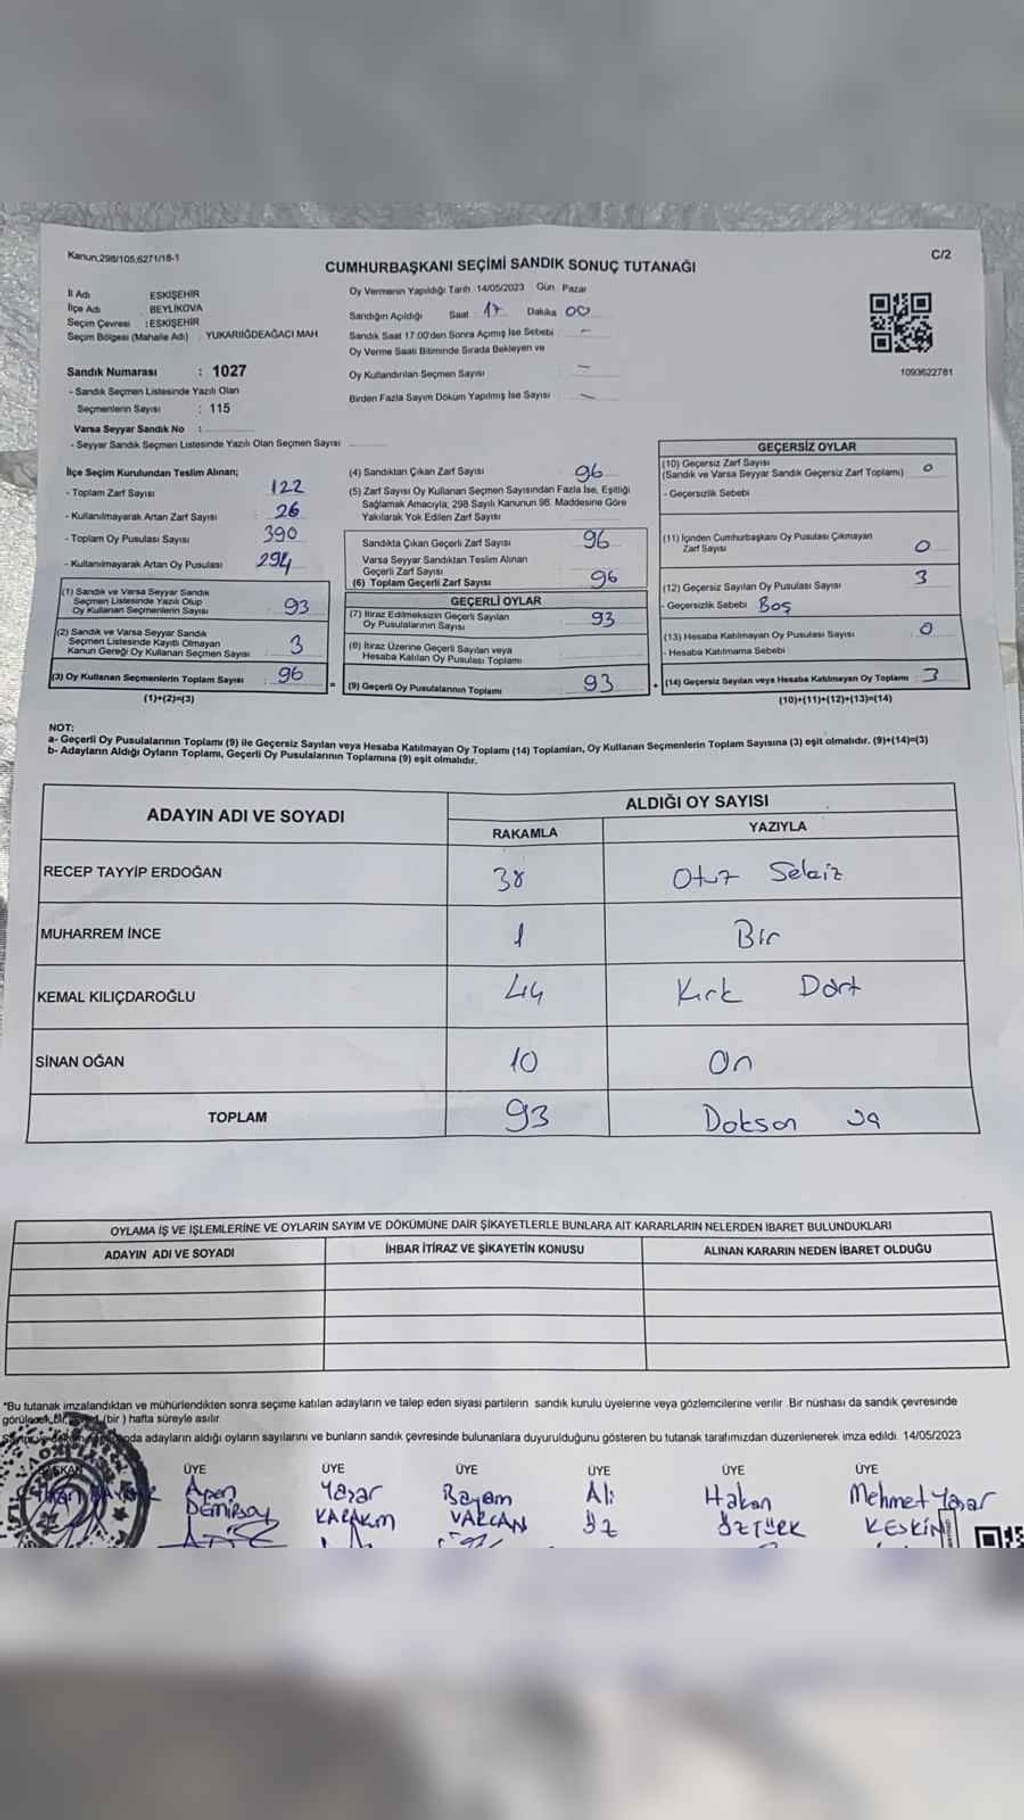 Kanun,298/105,6271/18-1
C/2
CUMHURBAŞKANI SEÇİMİ SANDIK SONUÇ TUTANAĞI
İl Adı ESKIŞEHİR
İlçe Adı BEYLİKOVA
Seçim Çevresi :ESKİŞEHİR
Seçim Bölgesi (Mahalle Adı) YUKARIIĞDEAĞACI MAH
Sandık Numarası : 1027
- Sandık Seçmen Listesinde Yazılı Olan
Seçmenlerin Sayısı : 115
Varsa Seyyar Sandık No :
- Seyyar Sandık Seçmen Listesinde Yazılı Olan Seçmen Sayısı
Oy Vermenin Yapıldığı Tarih 14/05/2023 Gün Pazar
Sandığın Açıldığı Saat 17 Dakika 00
Sandık Saat 17:00'den Sonra Açılmış İse Sebebi –
Oy Verme Saati Bitiminde Sırada Bekleyen ve
Oy Kullandırılan Seçmen Sayısı –
Birden Fazla Sayım Döküm Yapılmış İse Sayısı –
1093622781
İlçe Seçim Kurulundan Teslim Alınan;
- Toplam Zarf Sayısı 122
- Kullanılmayarak Artan Zarf Sayısı 26
- Toplam Oy Pusulası Sayısı 390
- Kullanılmayarak Artan Oy Pusulası 294
(1) Sandık ve Varsa Seyyar Sandık
Seçmen Listesinde Yazılı Olup
Oy Kullanan Seçmenlerin Sayısı 93
(2) Sandık ve Varsa Seyyar Sandık
Seçmen Listesinde Kayıtlı Olmayan
Kanun Gereği Oy Kullanan Seçmen Sayısı 3
(3) Oy Kullanan Seçmenlerin Toplam Sayısı 96
(1)+(2)=(3)
(4) Sandıktan Çıkan Zarf Sayısı 96
(5) Zarf Sayısı Oy Kullanan Seçmen Sayısından Fazla İse, Eşitliği
Sağlamak Amacıyla, 298 Sayılı Kanunun 98. Maddesine Göre
Yakılarak Yok Edilen Zarf Sayısı
Sandıkta Çıkan Geçerli Zarf Sayısı 96
Varsa Seyyar Sandıktan Teslim Alınan
Geçerli Zarf Sayısı
(6) Toplam Geçerli Zarf Sayısı 96
GEÇERLİ OYLAR
(7) İtiraz Edilmeksizin Geçerli Sayılan
Oy Pusulalarının Sayısı 93
(8) İtiraz Üzerine Geçerli Sayılan veya
Hesaba Katılan Oy Pusulası Toplamı
= (9) Geçerli Oy Pusulalarının Toplamı 93
GEÇERSİZ OYLAR
(10) Geçersiz Zarf Sayısı
(Sandık ve Varsa Seyyar Sandık Geçersiz Zarf Toplamı) 0
- Geçersizlik Sebebi
(11) İçinden Cumhurbaşkanı Oy Pusulası Çıkmayan
Zarf Sayısı 0
(12) Geçersiz Sayılan Oy Pusulası Sayısı 3
- Geçersizlik Sebebi Boş
(13) Hesaba Katılmayan Oy Pusulası Sayısı 0
- Hesaba Katılmama Sebebi
+ (14) Geçersiz Sayılan veya Hesaba Katılmayan Oy Toplamı 3
(10)+(11)+(12)+(13)=(14)
NOT:
a- Geçerli Oy Pusulalarının Toplamı (9) ile Geçersiz Sayılan veya Hesaba Katılmayan Oy Toplamı (14) Toplamları, Oy Kullanan Seçmenlerin Toplam Sayısına (3) eşit olmalıdır. (9)+(14)=(3)
b- Adayların Aldığı Oyların Toplamı, Geçerli Oy Pusulalarının Toplamına (9) eşit olmalıdır.
ADAYIN ADI VE SOYADI
ALDIĞI OY SAYISI
RAKAMLA YAZIYLA
RECEP TAYYİP ERDOĞAN 38 Otuz Sekiz
MUHARREM İNCE 1 Bir
KEMAL KILIÇDAROĞLU 44 Kırk Dört
SİNAN OĞAN 10 On
TOPLAM 93 Doksan üç
OYLAMA İŞ VE İŞLEMLERİNE VE OYLARIN SAYIM VE DÖKÜMÜNE DAİR ŞİKAYETLERLE BUNLARA AİT KARARLARIN NELERDEN İBARET BULUNDUKLARI
ADAYIN ADI VE SOYADI İHBAR İTİRAZ VE ŞİKAYETİN KONUSU ALINAN KARARIN NEDEN İBARET OLDUĞU
*Bu tutanak imzalandıktan ve mühürlendikten sonra seçime katılan adayların ve talep eden siyasi partilerin sandık kurulu üyelerine veya gözlemcilerine verilir. Bir nüshası da sandık çevresinde
(bir ) hafta süreyle asılır.
adayların aldığı oyların sayılarını ve bunların sandık çevresinde bulunanlara duyurulduğunu gösteren bu tutanak tarafımızdan düzenlenerek imza edildi. 14/05/2023
ÜYE ÜYE ÜYE ÜYE ÜYE ÜYE
Yaşar Bayram Ali Hakan Mehmet Yaşar
VARCAN ÖZ ÖZTÜRK KESKİN